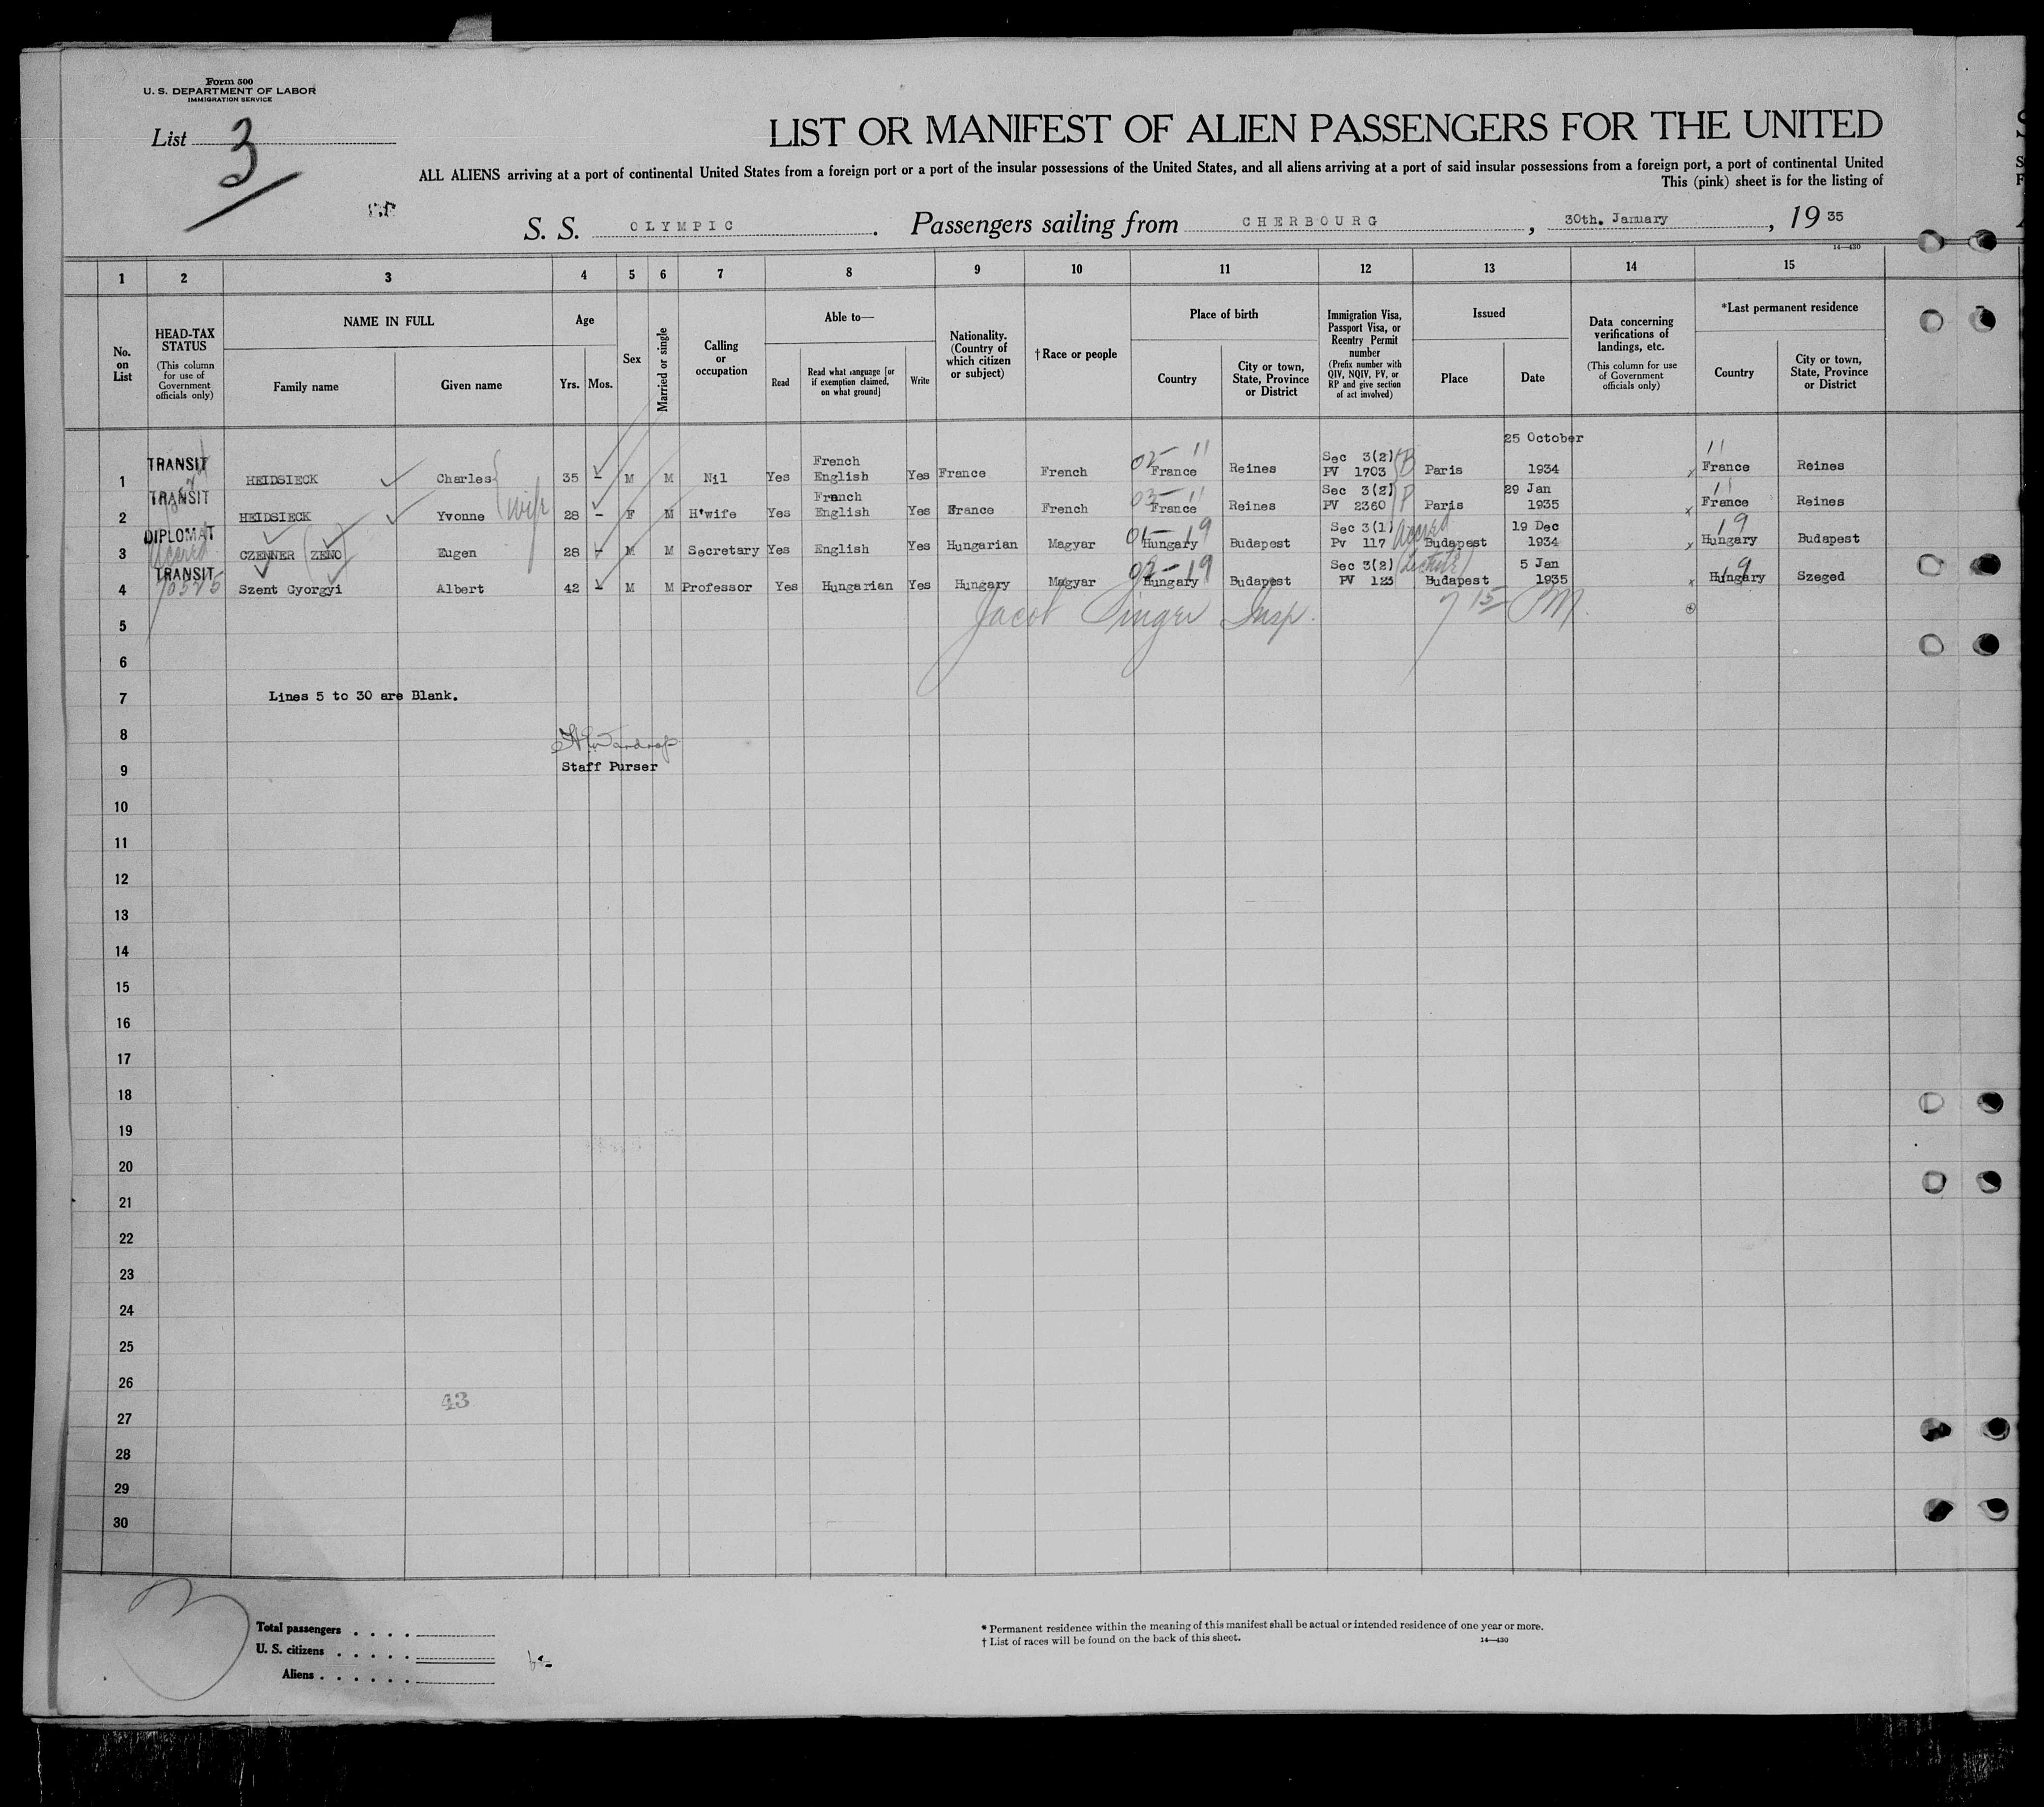 Form 500
U. S. DEPARTMENT OF LABOR
IMMIGRATION SERVICE
List 3
LIST OR MANIFEST OF ALIEN PASSENGERS FOR THE UNITED
ALL ALIENS arriving at a port of continental United States from a foreign port or a port of the insular possessions of the United States, and all aliens arriving at a port of said insular possessions from a foreign port, a port of continental United
This (pink) sheet is for the listing of
S. S. OLYMPIC. Passengers sailing from CHERBOURG, 30th. January, 1935
14—430
1 2 3 4 5 6 7 8 9 10 11 12 13 14 15
No. on List
HEAD-TAX STATUS
(This column for use of Government officials only)
NAME IN FULL
Family name
Given name
Age
Yrs. Mos.
Sex
Married or single
Calling or occupation
Able to—
Read
Read what language [or if exemption claimed, on what ground]
Write
Nationality. (Country of which citizen or subject)
†Race or people
Place of birth
Country
City or town, State, Province or District
Immigration Visa, Passport Visa, or Reentry Permit number
(Prefix number with QIV, NQIV, PV, or RP and give section of act involved)
Issued
Place
Date
Data concerning verifications of landings, etc.
(This column for use of Government officials only)
*Last permanent residence
Country
City or town, State, Province or District
1 TRANSIT HEIDSIECK Charles 35 - M M Nil Yes French English Yes France French 02- 11 France Reines Sec 3(2) PV 1703 B Paris 25 October 1934 x 11 France Reines
2 TRANSIT HEIDSIECK Yvonne wife 28 - F M H'wife Yes French English Yes France French 03- 11 France Reines Sec 3(2) PV 2360 P Paris 29 Jan 1935 x 11 France Reines
3 DIPLOMAT CZENNER (ZENO) Eugen 28 - M M Secretary Yes English Yes Hungarian Magyar 01-19 Hungary Budapest Sec 3(1) Pv 117 Budapest 19 Dec 1934 x 19 Hungary Budapest
4 TRANSIT 70575 Szent Gyorgyi Albert 42 - M M Professor Yes Hungarian Yes Hungary Magyar 02-19 Hungary Budapest Sec 3(2) PV 123 Budapest 5 Jan 1935 x 19 Hungary Szeged
5 Jacob Singer Insp. 7 15 PM.
6
7 Lines 5 to 30 are Blank.
8
9 Staff Purser
10
11
12
13
14
15
16
17
18
19
20
21
22
23
24
25
26
43
27
28
29
30
Total passengers . . . .
U. S. citizens . . . . .
Aliens . . . . . .
* Permanent residence within the meaning of this manifest shall be actual or intended residence of one year or more.
† List of races will be found on the back of this sheet.
14—430